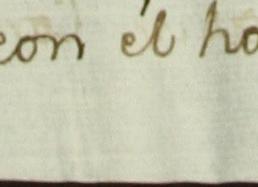 con él ho